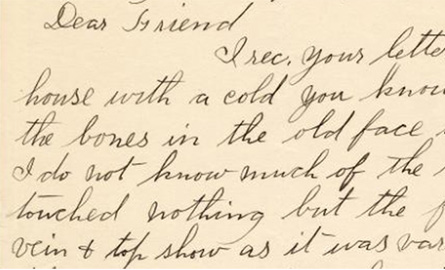 Dear Friend
I rec. your lette
house with a cold you know
the bones in the old face
I do not know much of the
touched nothing but the f
vein & top show as it was var